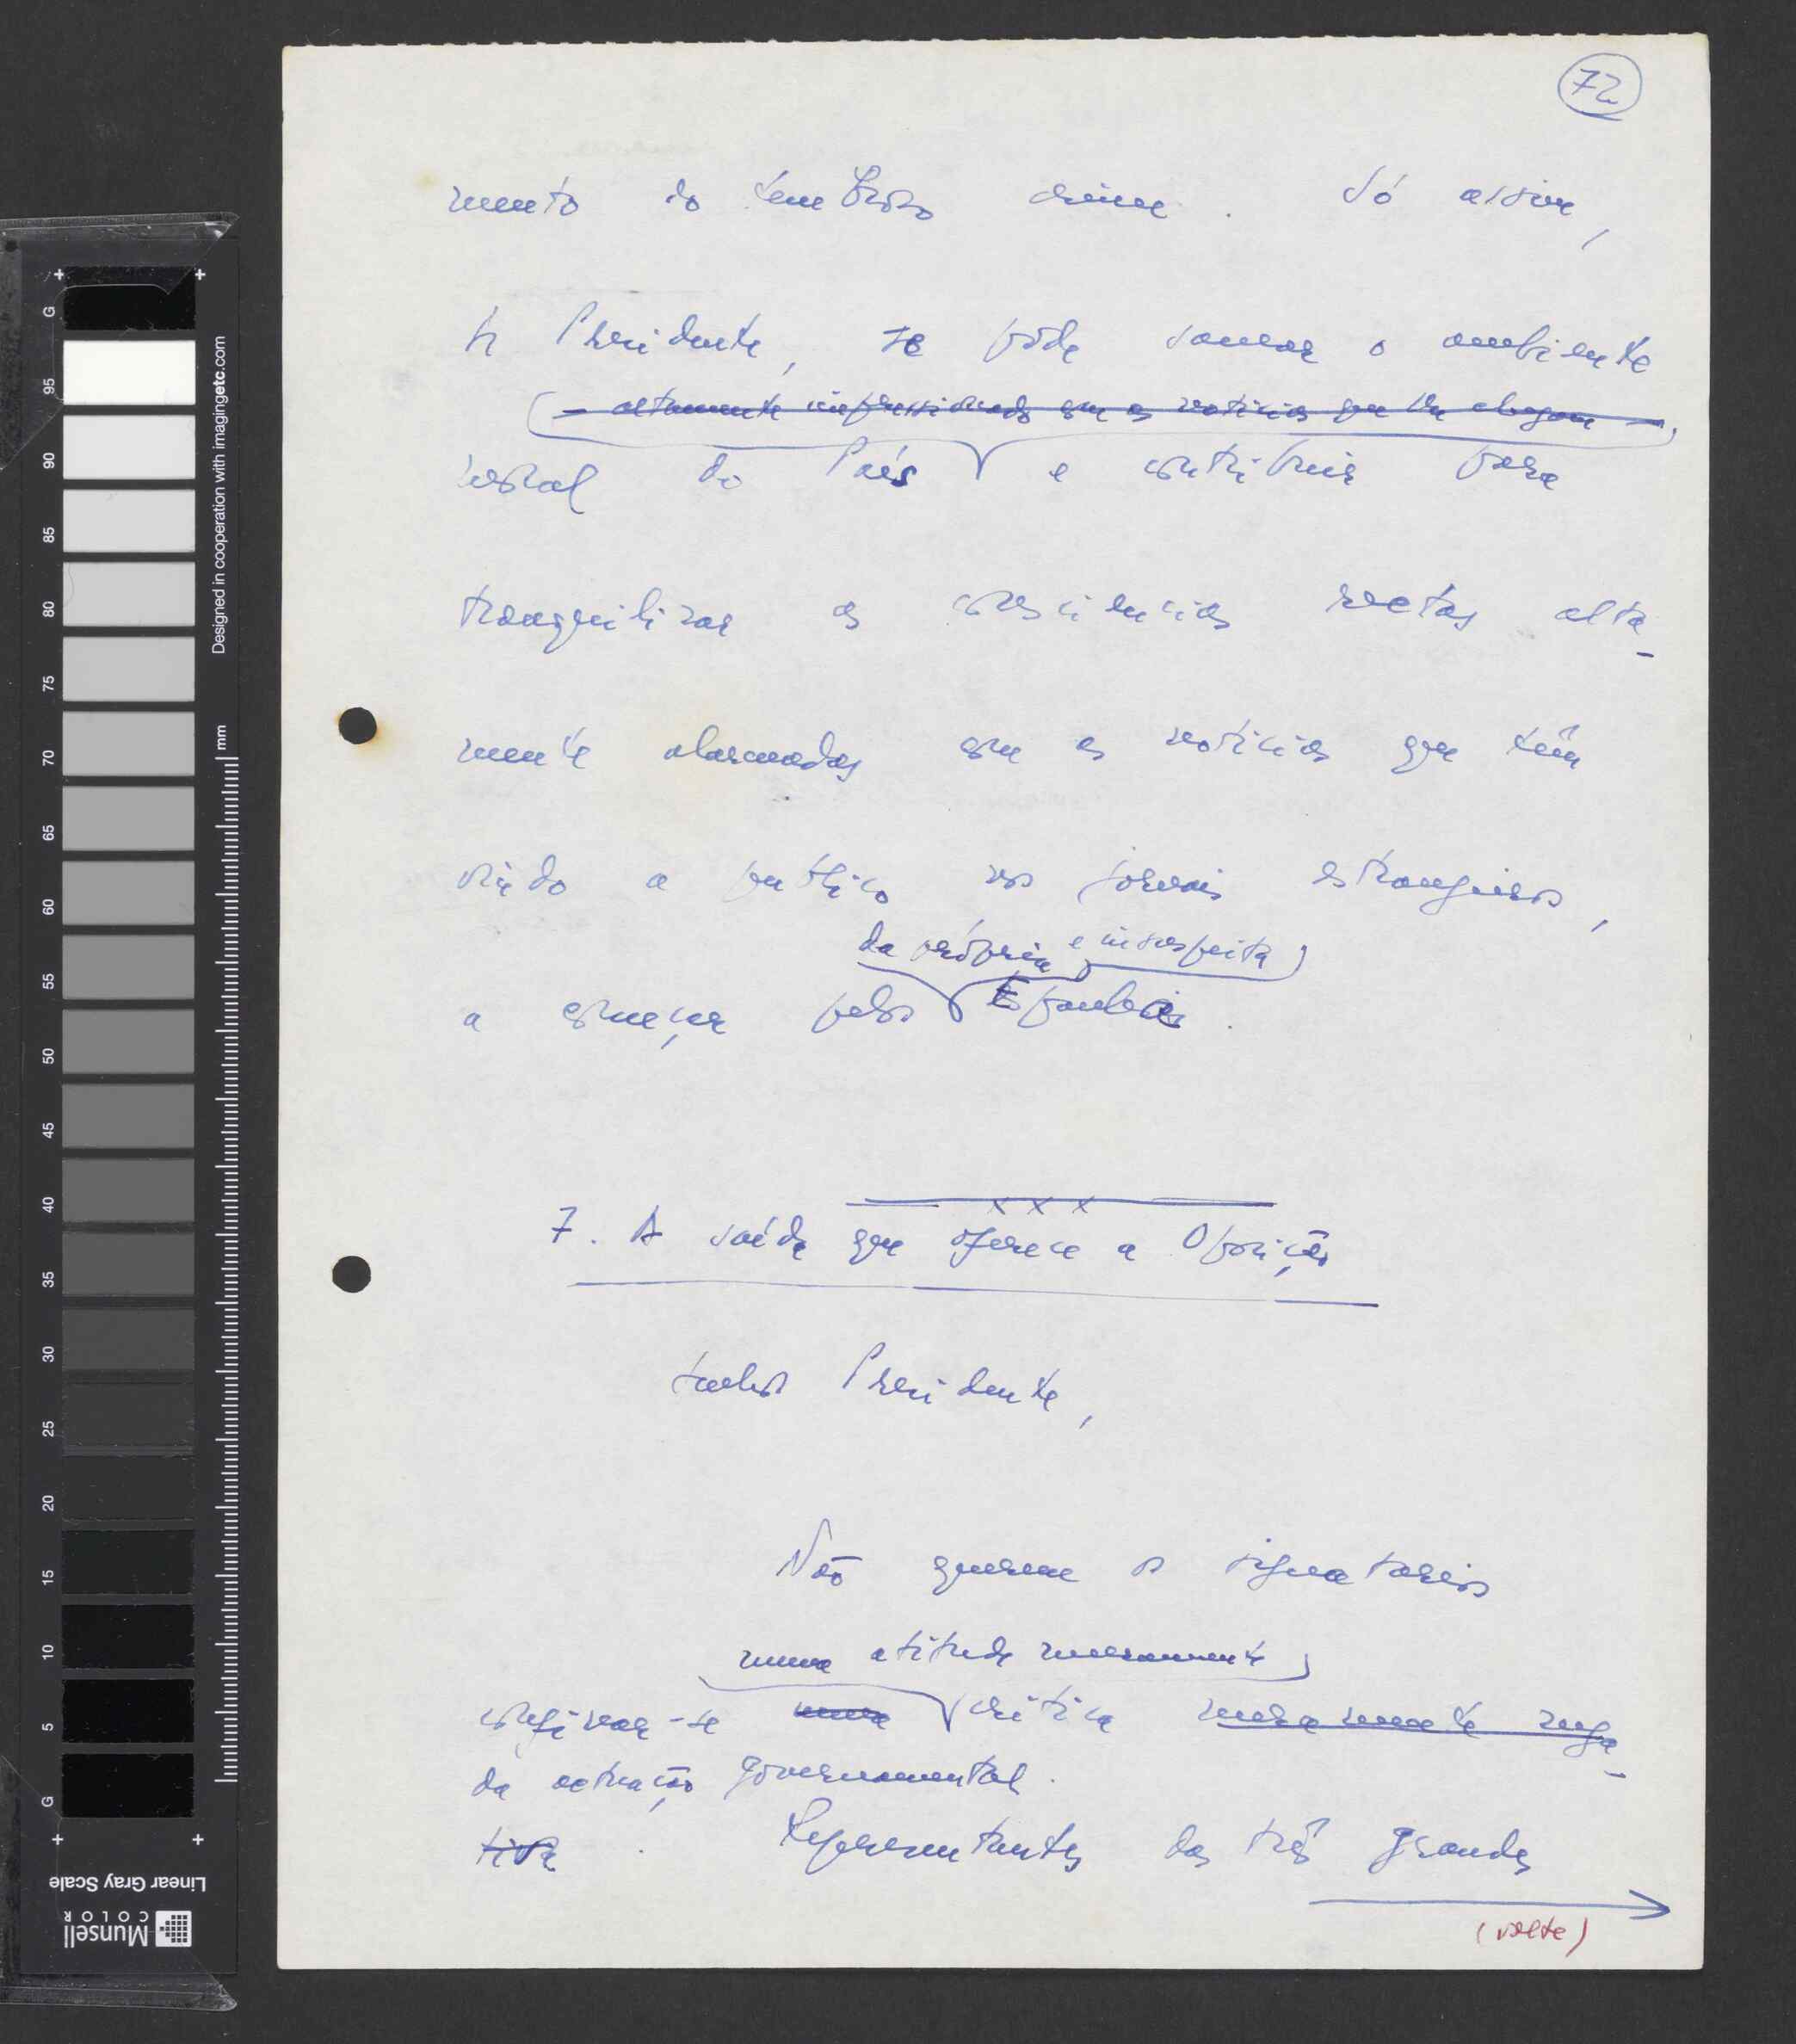 72
mento do tenebroso crime. Só assim,
Sr Presidente, se pode sanear o ambiente
– altamente impressionado com as notícias que lhe chegam –
moral do País e contribuir para
tranquilizar as consciencias rectas alta-
mente alarmadas com as notícias que têm
vindo a publico nos jornais estrangeiros,
da própria e insuspeita
a começar pelos Espanha.
x x x
7. A saída que oferece a Oposição
Senhor Presidente,
Não querem os signatarios
numa atitude meramente
confinar-se numa crítica meramente nega-
da actuação governamental.
tiva. Representantes das três grandes
(volte)
G
95
90
85
80
75
70
65
60
55
50
45
40
35
30
25
20
15
10
5
G
mm
Designed in cooperation with imagingetc.com
Linear Gray Scale
Munsell
COLOR